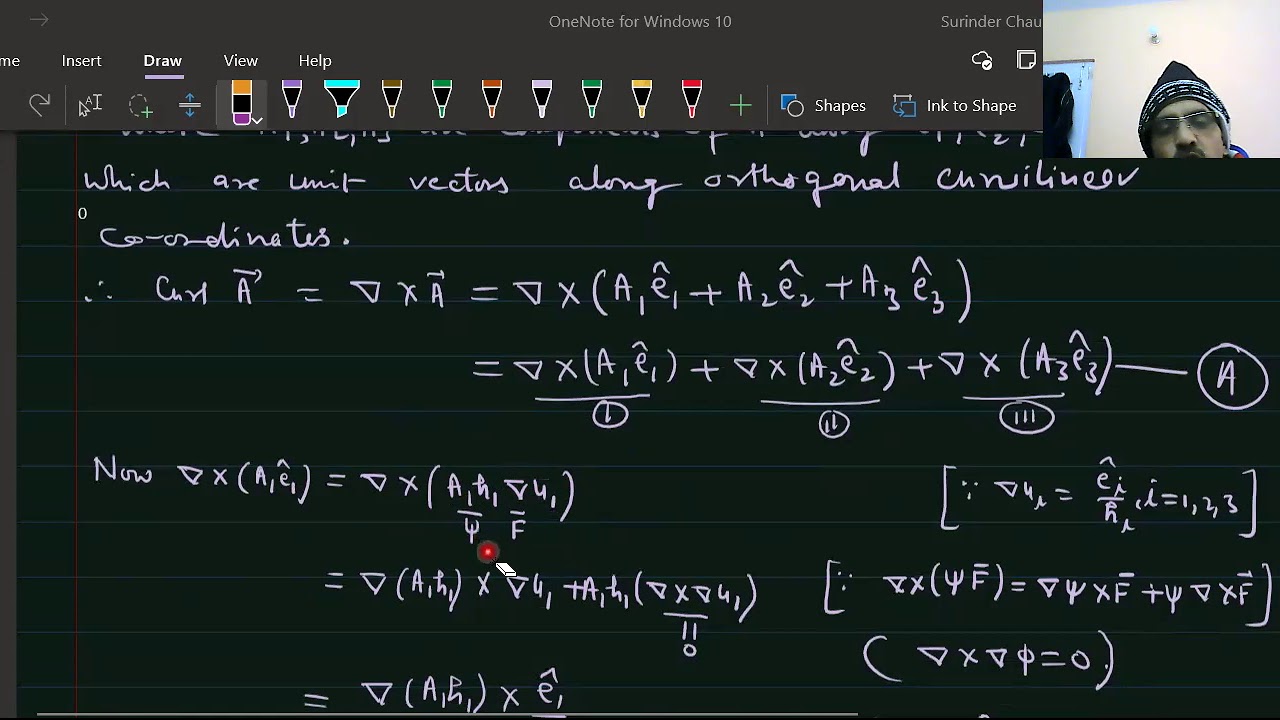 OneNote for Windows 10 Surinder Chau
me Insert Draw View Help
Shapes Ink to Shape
are components of along
which are unit vectors along orthogonal curvilinear
0
co-ordinates.
∴ Curl A⃗ = ∇ × A⃗ = ∇ × (A₁ê₁ + A₂ê₂ + A₃ê₃)
= ∇ × (A₁ê₁) + ∇ × (A₂ê₂) + ∇ × (A₃ê₃) — A
I II III
Now ∇ × (A₁ê₁) = ∇ × (A₁h₁ ∇u₁) [∵ ∇uᵢ = êᵢ/hᵢ, i = 1, 2, 3]
ψ F
= ∇(A₁h₁) × ∇u₁ + A₁h₁(∇ × ∇u₁) [∵ ∇×(ψF̄) = ∇ψ×F̄ + ψ∇×F̄]
|| 
0 (∇×∇φ=0.)
= ∇(A₁h₁) × ê₁